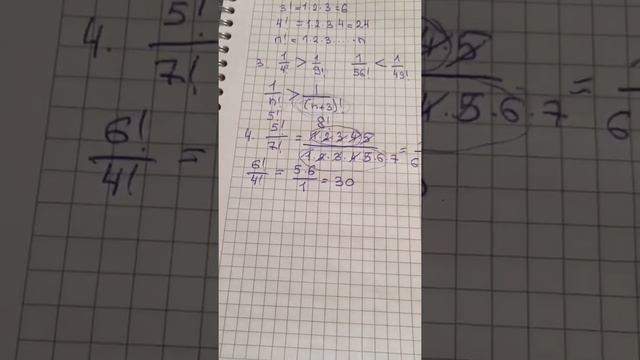 3! = 1·2·3 = 6
4! = 1·2·3·4 = 24
n! = 1·2·3 ... ·n
3. 1/4! > 1/9! 1/56! < 1/49!
1/n! > 1/(n+3)!
5! 8!
4. 5!/7! = 1·2·3·4·5/1·2·3·4·5·6·7 = 1/6
6!/4! = 5·6/1 = 30